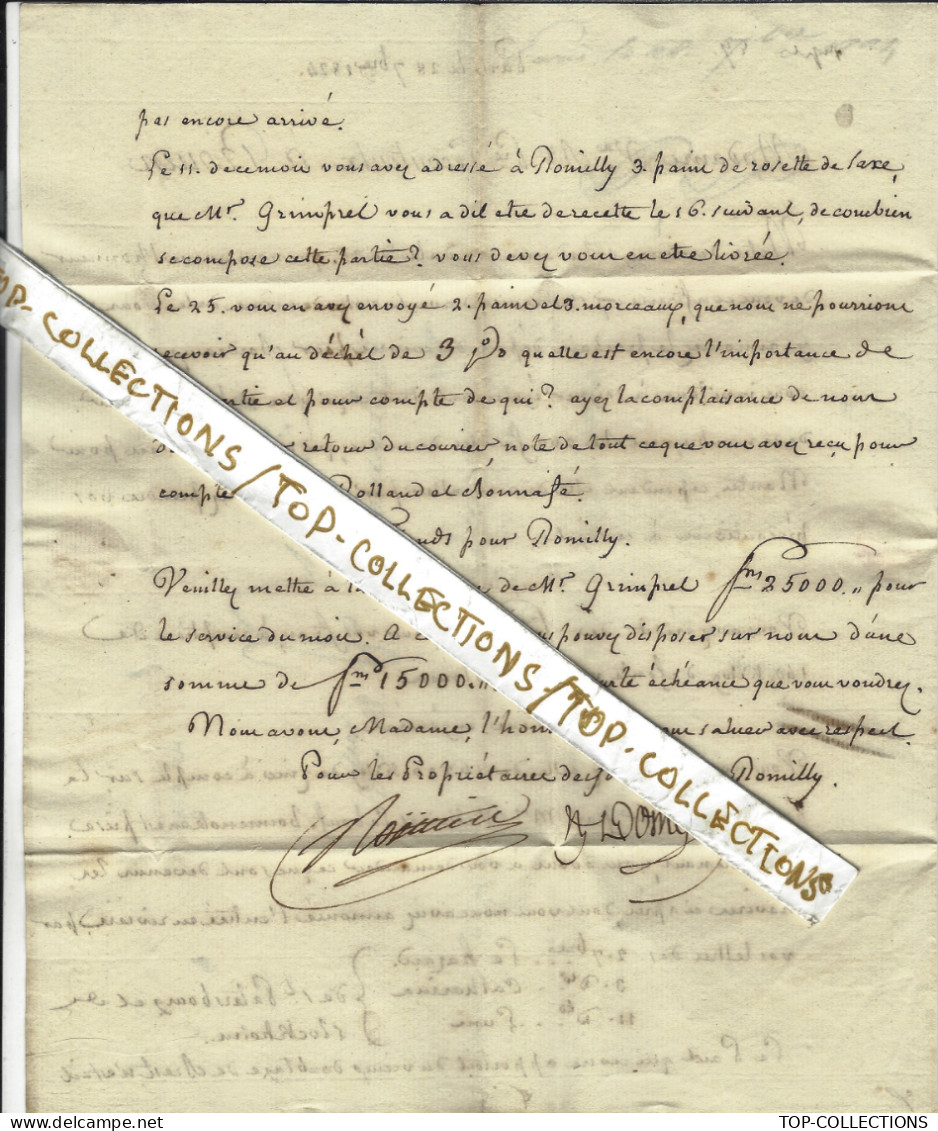 pas encore arrivé.
Le 11. de ce mois vous avez adressé à Romilly 3. pains de rosette de Saxe,
que Mr. Grimprel vous a dit etre de recette le 16. suivant, de combien
se compose cette partie? vous devez vous en etre livrée.
Le 25. vous en avez envoyé 2. pains et 3. morceaux, que nous ne pourrions
recevoir qu'au déchèt de 3 p% quelle est encore l'importance de
et pour compte de qui? ayez la complaisance de nous
retour du courier, note de tout ce que vous avez reçu pour
compte Rolland et Bonnafé.
pour Romilly.
Veuillez mettre à la de Mr. Grimprel frs 25000. " pour
le service du mois. A vous pouvez disposer sur nous d'une
somme de frs 15000. " échéance que vous voudrez.
Nous avons, Madame, l'hon saluer avec respect.
Pour les Propriétaires des Romilly.
TOP-COLLECTIONS / TOP-COLLECTIONS / TOP-COLLECTIONS
TOP-COLLECTIONS